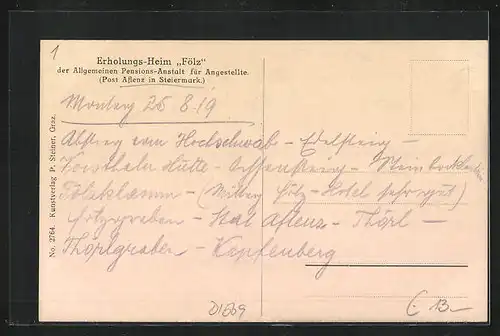 1
Erholungs-Heim „Fölz"
der Allgemeinen Pensions-Anstalt für Angestellte.
(Post Aflenz in Steiermark.)
Montag 25 8 19
Abstieg vom Hochschwab - Edelsteig -
Hütte -
Fölzklamm - (Mittag Fölz - Hotel sehr gut)
Fölzgraben - Aflenz - Thörl -
Thörlgraben - Kapfenberg
No. 2764. Kunstverlag P. Steiner, Graz.
13.-